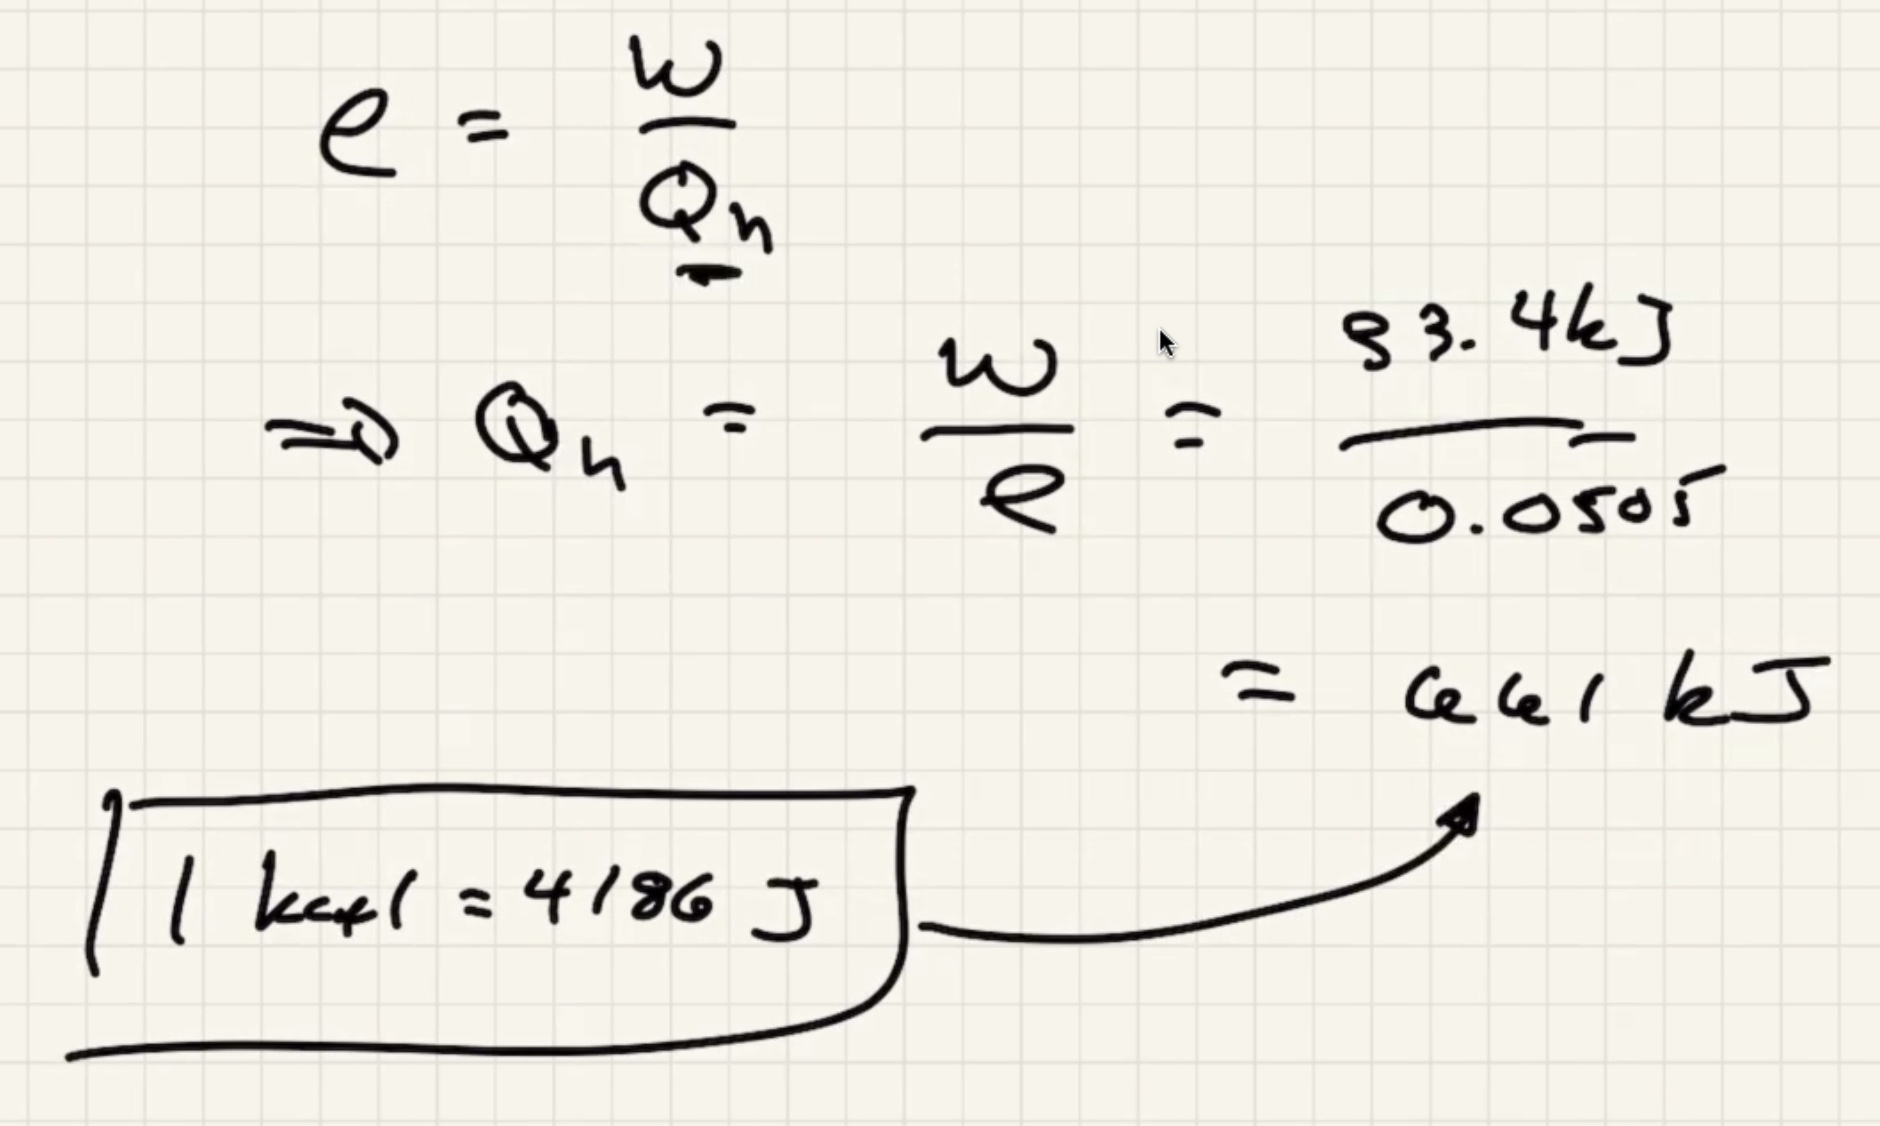 e = W/Qₕ
⇒ Qₕ = W/e = 33.4kJ/0.0505
= 661 kJ
1 kcal = 4186 J